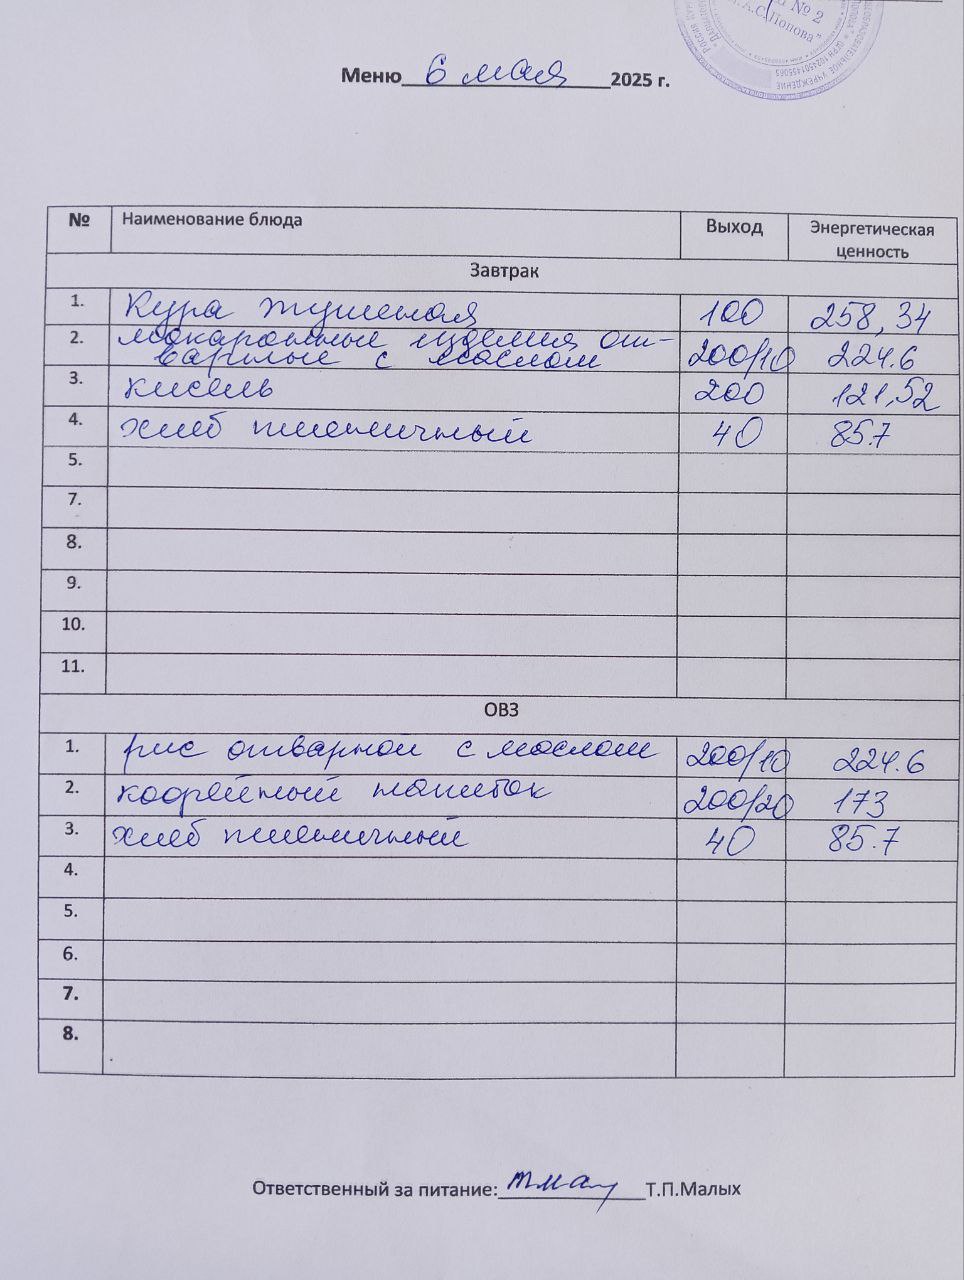 № 2
А.С.Попова"
Меню 6 мая 2025 г.
№ Наименование блюда Выход Энергетическая ценность
Завтрак
1. Кура тушеная 100 258,34
2. макаронные изделия от-
варные с маслом 200/10 224.6
3. кисель 200 121,52
4. хлеб пшеничный 40 85.7
5.
7.
8.
9.
10.
11.
ОВЗ
1. рис отварной с маслом 200/10 224.6
2. кофейный напиток 200/20 173
3. хлеб пшеничный 40 85.7
4.
5.
6.
7.
8.
Ответственный за питание: Т.П.Малых